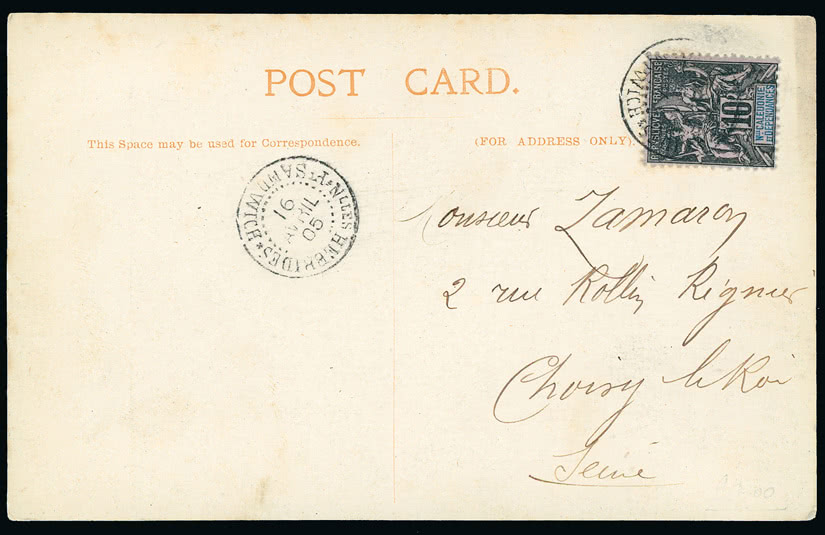 POST CARD.
This Space may be used for Correspondence.
(FOR ADDRESS ONLY).
Nlles HEBRIDES * Pt SANDWICH *
16
AVRIL
05
WICH *
REPUBLIQUE FRANCAISE
10
Nlle CALEDONIE
ET DEPENDANCES
Monsieur Zamaron
2 rue Rollin Régnier
Choisy le Roi
Seine